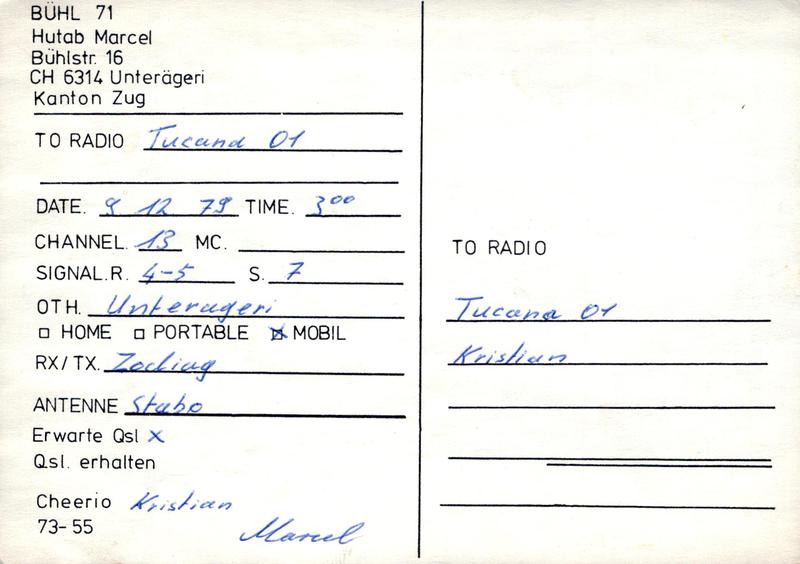 BÜHL 71
Hutab Marcel
Bühlstr. 16
CH 6314 Unterägeri
Kanton Zug
TO RADIO Tucana 01
DATE. 9 12 79 TIME. 3⁰⁰
CHANNEL. 13 MC.
SIGNAL.R. 4-5 S. 7
QTH. Unterageri
HOME PORTABLE MOBIL
RX/TX. Zodiag
ANTENNE Stabo
Erwarte Qsl x
Qsl. erhalten
Cheerio Kristian
73-55 Marcel
TO RADIO
Tucana 01
Kristian